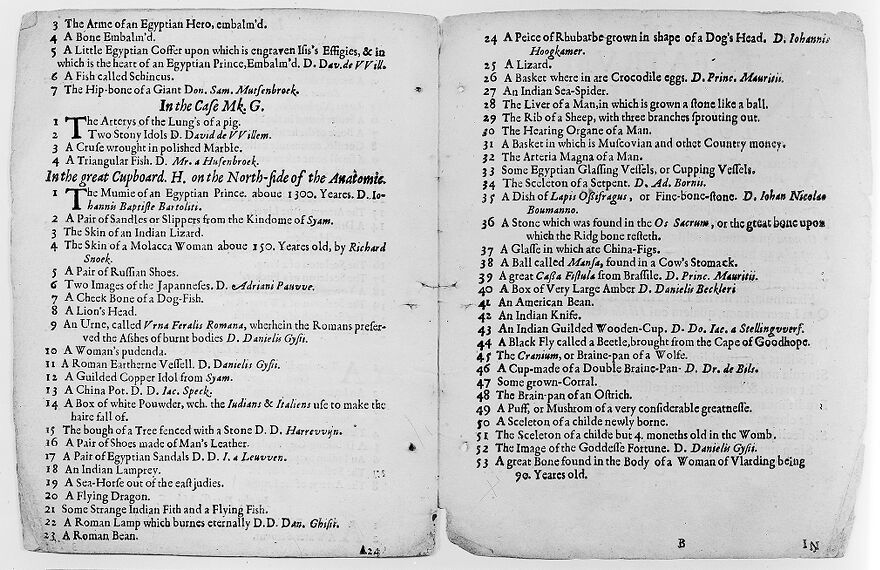 3 The Arme of an Egyptian Hero, embalm'd.
4 A Bone Embalm'd.
5 A Little Egyptian Coffer upon which is engraven Isis's Effigies, & in
which is the heart of an Egyptian Prince, Embalm'd. D. Dav. de VVill.
6 A Fish called Schincus.
7 The Hip-bone of a Giant Don. Sam. Mutsenbroek.
In the Case Mk. G.
1 The Arterys of the Lung's of a pig.
2 Two Stony Idols D. David de VVillem.
3 A Cruse wrought in polished Marble.
4 A Triangular Fish. D. Mr. a Husenbroek.
In the great Cupboard. H. on the North-side of the Anatomie.
1 The Mumie of an Egyptian Prince. aboue 1300. Yeares. D. Io-
hannis Baptiste Bartoliti.
2 A Pair of Sandles or Slippers from the Kindome of Syam.
3 The Skin of an Indian Lizard.
4 The Skin of a Molacca Woman aboue 150. Yeares old, by Richard
Snoek.
5 A Pair of Russian Shoes.
6 Two Images of the Japanneses. D. Adriani Pauvve.
7 A Cheek Bone of a Dog-Fish.
8 A Lion's Head.
9 An Urne, called Vrna Feralis Romana, wherhein the Romans preser-
ved the Ashes of burnt bodies D. Danielis Gysii.
10 A Woman's pudenda.
11 A Roman Eartherne Vessell. D. Danielis Gysii.
12 A Guilded Copper Idol from Syam.
13 A China Pot. D. D. Iac. Speck.
14 A Box of white Pouwder, wch. the Iudians & Italiens use to make the
haire fall of.
15 The bough of a Tree fenced with a Stone D. D. Harrevvijn.
16 A Pair of Shoes made of Man's Leather.
17 A Pair of Egyptian Sandals D. D. I. a Leuvven.
18 An Indian Lamprey.
19 A Sea-Horse out of the east judies.
20 A Flying Dragon.
21 Some Strange Indian Fith and a Flying Fish.
22 A Roman Lamp which burnes eternally D.D. Dan. Ghisii.
23 A Roman Bean.
A24
24 A Peice of Rhubarbe grown in shape of a Dog's Head. D. Iohannis
Hoogkamer.
25 A Lizard.
26 A Basket where in are Crocodile eggs. D. Princ. Mauritis.
27 An Indian Sea-Spider.
28 The Liver of a Man, in which is grown a stone like a ball.
29 The Rib of a Sheep, with three branches sprouting out.
30 The Hearing Organe of a Man.
31 A Basket in which is Muscovian and other Country money.
32 The Arteria Magna of a Man.
33 Some Egyptian Glassing Vessels, or Cupping Vessels.
34 The Sceleton of a Serpent. D. Ad. Bornii.
35 A Dish of Lapis Ossifragus, or Fine-bone-stone. D. Iohan Nicolao
Boumanno.
36 A Stone which was found in the Os Sacrum, or the great bone upon
which the Ridg bone resteth.
37 A Glasse in which are China-Figs.
38 A Ball called Mansa, found in a Cow's Stomack.
39 A great Casia Fistula from Brassile. D. Princ. Mauritii.
40 A Box of Very Large Amber D. Danielis Beckleri
41 An American Bean.
42 An Indian Knife.
43 An Indian Guilded Wooden-Cup. D. Do. Iac. a Stellingvverf.
44 A Black Fly called a Beetle, brought from the Cape of Goodhope.
45 The Cranium, or Braine-pan of a Wolfe.
46 A Cup-made of a Double Braine-Pan- D. Dr. de Bils.
47 Some grown-Corral.
48 The Brain-pan of an Ostrich.
49 A Puff, or Mushrom of a very considerable greatnesse.
50 A Sceleton of a childe newly borne.
51 The Sceleton of a childe but 4. moneths old in the Womb.
52 The Image of the Goddesse Fortune. D. Danielis Gysii.
53 A great Bone found in the Body of a Woman of Vlarding being
90. Yeares old.
B
IN